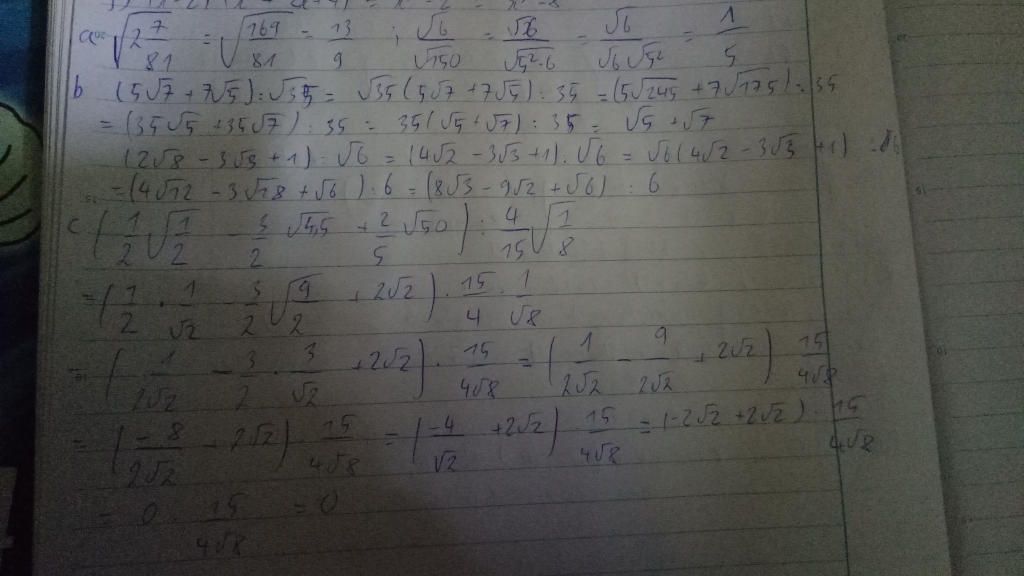 a √(2 7/81) = √(169/81) = 13/9 ; √6/√150 = √6/√(5²·6) = √6/(√6 √5²) = 1/5
b (5√7 + 7√5) : √35 = √35 (5√7 + 7√5) : 35 = (5√245 + 7√175) : 35
= (35√5 + 35√7) : 35 = 35(√5 + √7) : 35 = √5 + √7
(2√8 - 3√3 + 1) : √6 = (4√2 - 3√3 + 1) : √6 = √6 (4√2 - 3√3 + 1) : 6
= (4√12 - 3√18 + √6) : 6 = (8√3 - 9√2 + √6) : 6
c. (1/2 √(1/2) - 3/2 √4,5 + 2/5 √50) : 4/15 √(1/8)
= (1/2 · 1/√2 - 3/2 √(9/2) + 2√2) · 15/4 · 1/√8
= (1/(2√2) - 3/2 · 3/√2 + 2√2) · 15/(4√8) = (1/(2√2) - 9/(2√2) + 2√2) 15/(4√8)
= (-8/(2√2) + 2√2) · 15/(4√8) = (-4/√2 + 2√2) · 15/(4√8) = (-2√2 + 2√2) · 15/(4√8)
= 0 · 15/(4√8) = 0